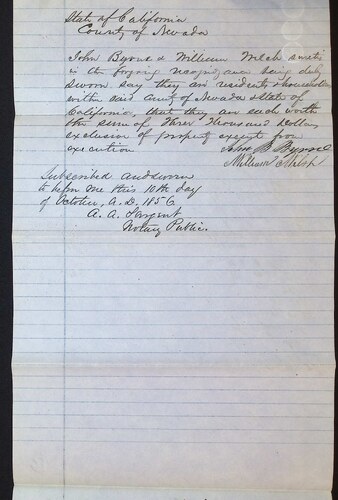 State of California
County of Nevada
John Byrne & William Welch sureties
in the forgoing recognizance being duly
sworn say they are residents & householders
within said County of Nevada & State of
California, that they are each worth
the sum of Three Thousand Dollars
exclusive of property exempt from
execution
John B Byrne
William Welsh
Subscribed and sworn
to before me this 10th day
of October, A.D. 1856
A. A. Sargent
Notary Public.